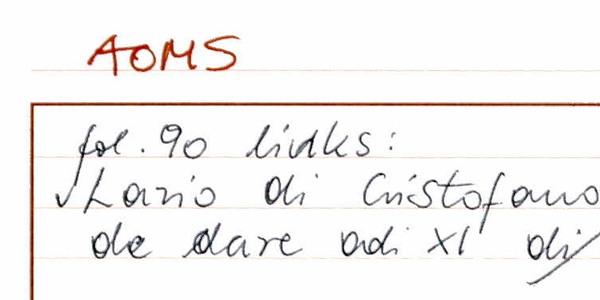 AOMS
fol. 90 links:
Lazio di Cristofano
de dare adi XI di